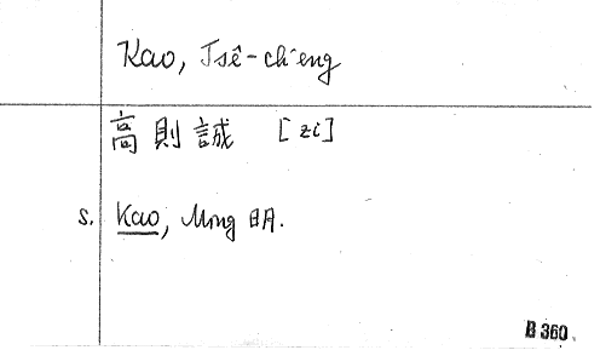 Kao, Tsê-ch'eng
高則誠 [zi]
s. Kao, Ming 明.
B 360.